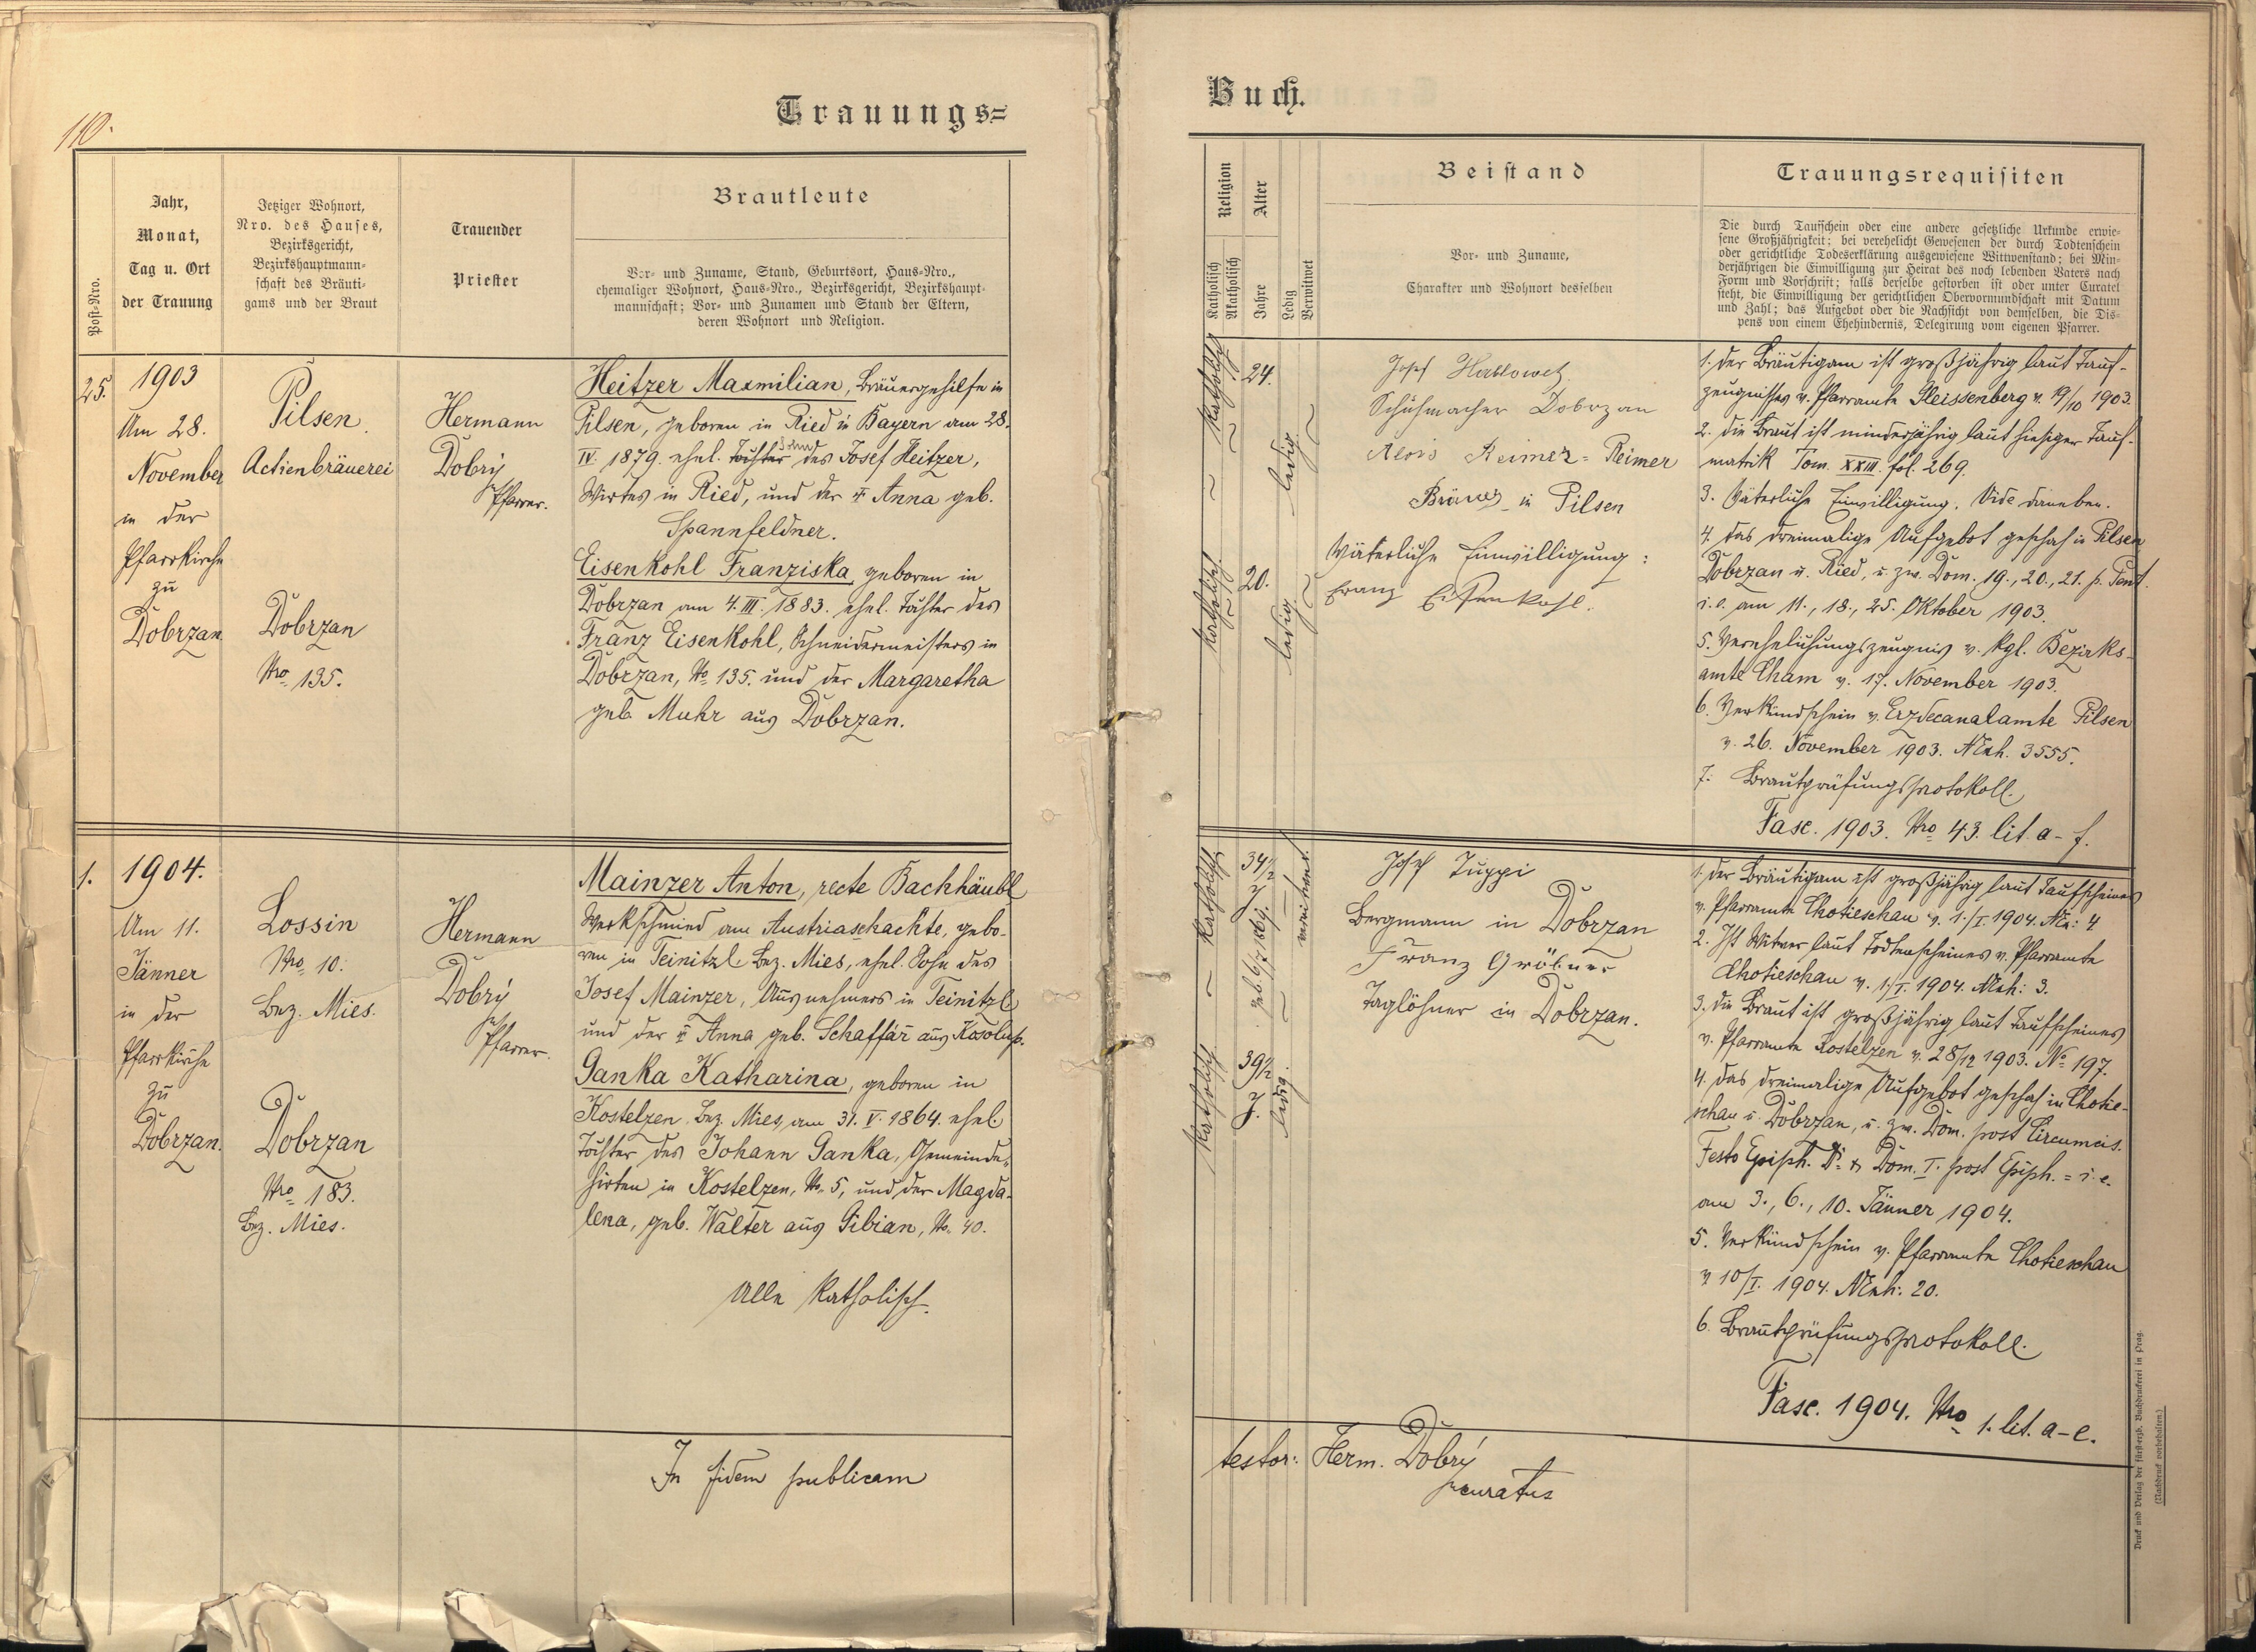 110.
Trauungs=
Post-Nro.
Jahr,
Monat,
Tag u. Ort
der Trauung
Jetziger Wohnort,
Nro. des Hauses,
Bezirksgericht,
Bezirkshauptmann-
schaft des Bräuti-
gams und der Braut
Trauender
Priester
Brautleute
Vor- und Zuname, Stand, Geburtsort, Haus-Nro.,
ehemaliger Wohnort, Haus-Nro., Bezirksgericht, Bezirkshaupt-
mannschaft; Vor- und Zunamen und Stand der Eltern,
deren Wohnort und Religion.
25.
1903
Am 28.
November
in der
Pfarrkirche
zu
Dobrzan.
Pilsen.
Actienbräuerei
Dobrzan
Nro 135.
Hermann
Dobrý
Pfarrer.
Heitzer Maxmilian, Bräuergehilfe in
Pilsen, geboren in Ried in Bayern am 28.
IV. 1879. ehel. Tochter Sohn des Josef Heitzer,
Wirtes in Ried, und der Anna geb.
Spannfeldner.
Eisenkohl Franziska, geboren in
Dobrzan am 4. III. 1883. ehel. Tochter des
Franz Eisenkohl, Schneidermeisters in
Dobrzan, No 135. und der Margaretha
geb. Muhr aus Dobrzan.
1.
1904.
Am 11.
Jänner
in der
Pfarrkirche
zu
Dobrzan.
Lossin
Nro 10.
Bez. Mies.
Dobrzan
Nro 183.
Bez. Mies.
Hermann
Dobrý
Pfarrer.
Mainzer Anton, recte Bachhäubl
Werkschmied am Austriaschachte, gebo-
ren in Teinitzl. Bez. Mies, ehel. Sohn des
Josef Mainzer, Ausnehmers in Teinitzl
und der Anna geb. Schaffář aus Kosolup.
Ganka Katharina, geboren in
Kostelzen Bez. Mies, am 31. V. 1864. ehel.
Tochter des Johann Ganka, Gemeinde-
hirten in Kostelzen, No 5, und der Magda-
lena, geb. Walter aus Gibian, No. 40.
Alle katholisch.
In fidem publicam
Buch.
Religion
Katholisch
Akatholisch
Alter
Jahre
Ledig
Verwitwet
Beistand
Vor- und Zuname,
Charakter und Wohnort desselben
Trauungsrequisiten
Die durch Taufschein oder eine andere gesetzliche Urkunde erwie-
sene Großjährigkeit; bei verehelicht Gewesenen der durch Todtenschein
oder gerichtliche Todeserklärung ausgewiesene Witwenstand; bei Min-
derjährigen die Einwilligung zur Heirat des noch lebenden Vaters nach
Form und Vorschrift; falls derselbe gestorben ist oder unter Curatel
steht, die Einwilligung der gerichtlichen Obervormundschaft mit Datum
und Zahl; das Aufgebot oder die Nachsicht von demselben, die Dis-
pens von einem Ehehindernis, Delegirung vom eigenen Pfarrer.
katholisch
24.
ledig.
katholisch.
20.
ledig.
Josef
Schuhmacher Dobrzan
Alois Reimer = Reimer
Bräuer in Pilsen
Väterliche Einwilligung:
Franz Eisenkohl.
1. Der Bräutigam ist großjährig laut Tauf-
zeugnisses v. Pfarramte Pleissenberg v. 19/10 1903.
2. die Braut ist minderjährig laut hiesiger Tauf-
matrik Tom. XXIII. fol. 269.
3. Väterliche Einwilligung. Vide daneben.
4. das dreimalige Aufgebot geschah in Pilsen
Dobrzan u. Ried, u. zw. Dom. 19., 20., 21. p. Pent.
i. e. am 11., 18., 25. Oktober 1903.
5. Verehelichungszeugnis v. kgl. Bezirks-
amte Cham v. 17. November 1903.
6. Verkündschein v. Erzdecanalamte Pilsen
v. 26. November 1903. NExh. 3555.
7. Brautprüfungsprotokoll.
Fasc. 1903. Nro 43. lit. a - f.
katholisch
34 1/2
J.
verwitwet.
katholisch
39 1/2
J.
ledig
Josef Tuppi
Bergmann in Dobrzan
Franz Gröbner
Taglöhner in Dobrzan.
1. Der Bräutigam ist großjährig laut Taufscheines
v. Pfarramte Chotieschau v. 1./I. 1904. 4
2. Ist Witwer laut Todtenscheines v. Pfarramte
Chotieschau v. 1./I. 1904. NExh: 3.
3. die Braut ist großjährig laut Taufscheines
v. Pfarramte Kostelzen v. 28/12 1903. No 197.
4. das dreimalige Aufgebot geschah in Chotie-
schau u. Dobrzan, u. zw. Dom. post Circumcis.
Festo Epiph. D. & Dom. I. post Epiph. = i. e.
am 3., 6., 10. Jänner 1904.
5. Verkündschein v. Pfarramte Chotieschau
v. 10/I. 1904. NExh: 20.
6. Brautprüfungsprotokoll.
Fasc. 1904. Nro 1. lit. a - e.
testor: Herm. Dobrý
curatus
Druck und Verlag der fürsterzb. Buchdruckerei in Prag.
(Nachdruck vorbehalten.)